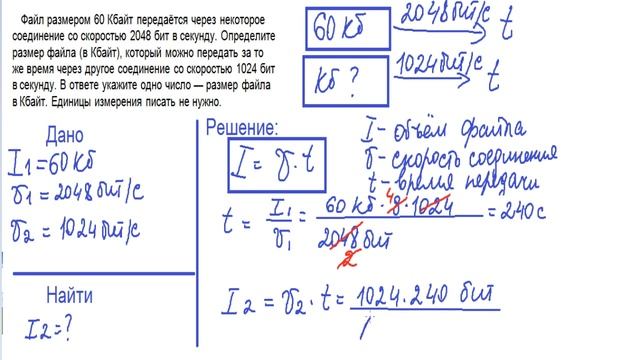 Файл размером 60 Кбайт передаётся через некоторое
соединение со скоростью 2048 бит в секунду. Определите
размер файла (в Кбайт), который можно передать за то
же время через другое соединение со скоростью 1024 бит
в секунду. В ответе укажите одно число — размер файла
в Кбайт. Единицы измерения писать не нужно.
60 Кб 2048 бит/с t
Кб ? 1024 бит/с t
Дано
I1 = 60 Кб
v1 = 2048 бит/с
v2 = 1024 бит/с
Найти
I2 = ?
Решение:
I = v · t
I - объём файла
v - скорость соединения
t - время передачи
t = I1 / v1 = 60 Кб · 8 · 1024 / 2048 бит = 240 с
4
2
I2 = v2 · t = 1024 · 240 бит